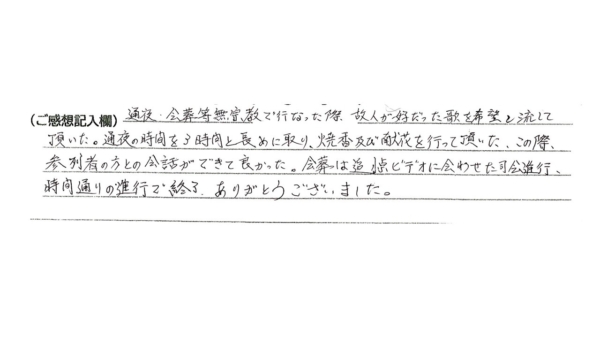 (ご感想記入欄) 通夜・会葬等無宗教で行なった際、故人が好だった歌を希望し流して
頂いた。通夜の時間を3時間と長めに取り、焼香及び献花を行って頂いた、この際、
参列者の方との会話ができて良かった。会葬は追憶ビデオに合わせた司会進行、
時間通りの進行で終る、ありがとうございました。